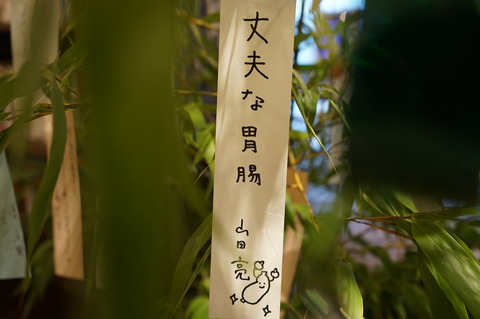 丈夫な胃腸
山田亮